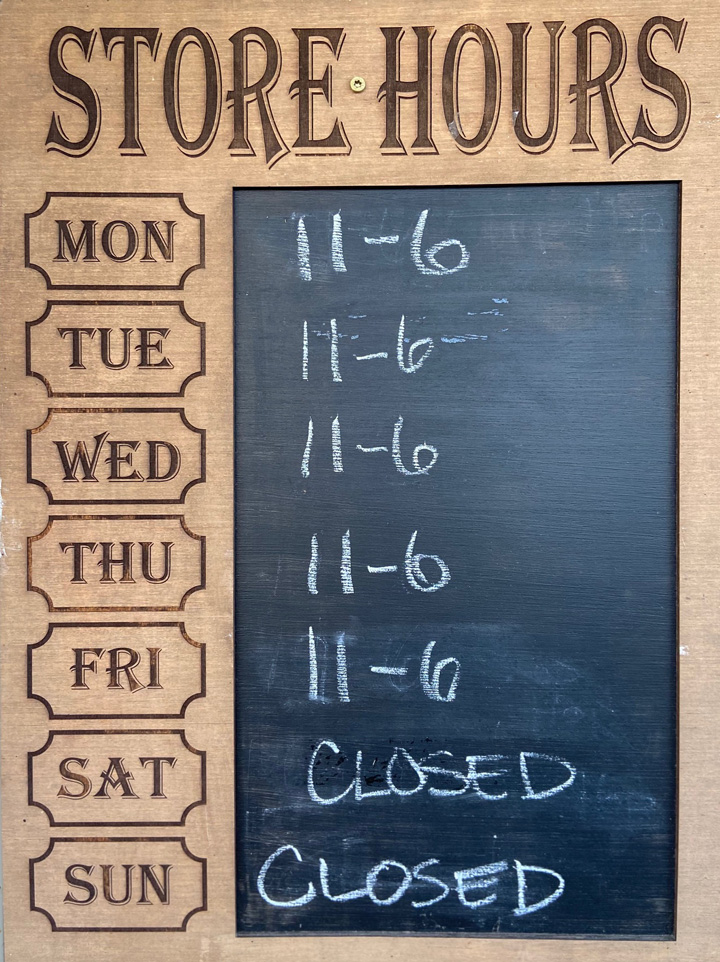 STORE HOURS
MON 11-6
TUE 11-6
WED 11-6
THU 11-6
FRI 11-6
SAT CLOSED
SUN CLOSED